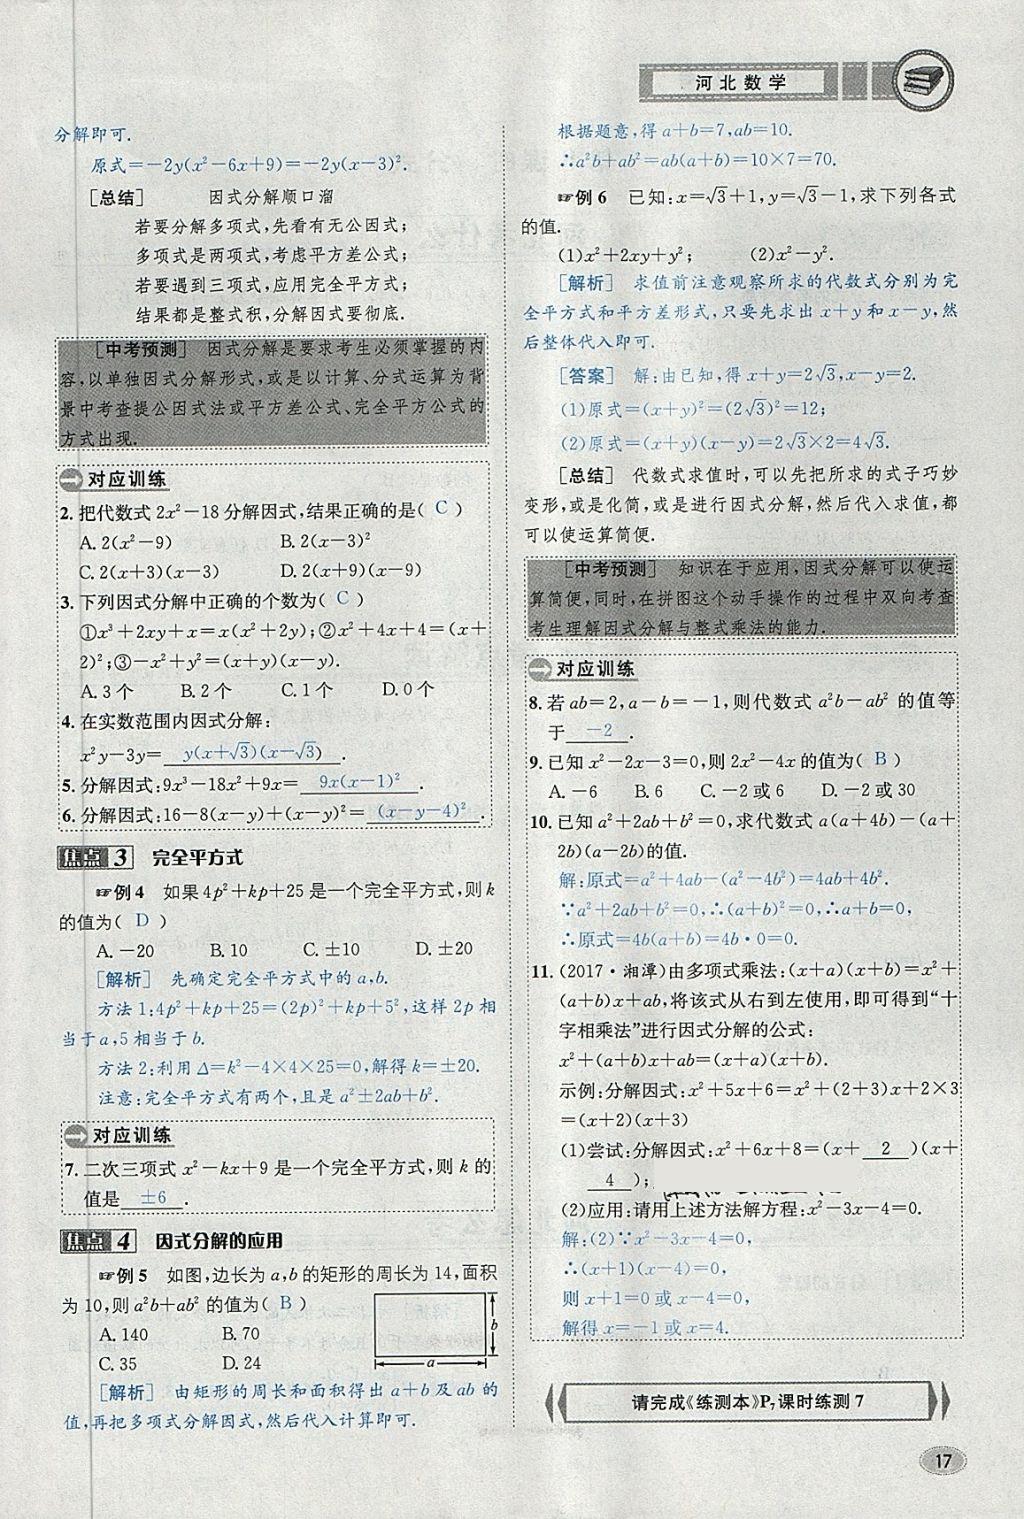 河北数学
分解即可.
原式=-2y(x²-6x+9)=-2y(x-3)².
[总结] 因式分解顺口溜
若要分解多项式,先看有无公因式;
多项式是两项式,考虑平方差公式;
若要遇到三项式,应用完全平方式;
结果都是整式积,分解因式要彻底.
[中考预测] 因式分解是要求考生必须掌握的内
容,以单独因式分解形式,或是以计算、分式运算为背
景中考查提公因式法或平方差公式、完全平方公式的
方式出现.
对应训练
2.把代数式2x²-18分解因式,结果正确的是( C )
A.2(x²-9) B.2(x-3)²
C.2(x+3)(x-3) D.2(x+9)(x-9)
3.下列因式分解中正确的个数为( C )
①x³+2xy+x=x(x²+2y);②x²+4x+4=(x+
2)²;③-x²+y²=(x+y)(x-y).
A.3个 B.2个 C.1个 D.0个
4.在实数范围内因式分解:
x²y-3y= y(x+√3)(x-√3) .
5.分解因式:9x³-18x²+9x= 9x(x-1)² .
6.分解因式:16-8(x-y)+(x-y)²= (x-y-4)² .
焦点3 完全平方式
☞例4 如果4p²+kp+25是一个完全平方式,则k
的值为( D )
A.-20 B.10 C.±10 D.±20
[解析] 先确定完全平方式中的a,b.
方法1:4p²+kp+25=(2p)²+kp+5²,这样2p相
当于a,5相当于b.
方法2:利用Δ=k²-4×4×25=0,解得k=±20.
注意:完全平方式有两个,且是a²±2ab+b².
对应训练
7.二次三项式x²-kx+9是一个完全平方式,则k的
值是 ±6 .
焦点4 因式分解的应用
☞例5 如图,边长为a,b的矩形的周长为14,面积
为10,则a²b+ab²的值为( B )
A.140 B.70
C.35 D.24
b
a
[解析] 由矩形的周长和面积得出a+b及ab的
值,再把多项式分解因式,然后代入计算即可.
根据题意,得a+b=7,ab=10.
∴a²b+ab²=ab(a+b)=10×7=70.
☞例6 已知:x=√3+1,y=√3-1,求下列各式
的值.
(1)x²+2xy+y²; (2)x²-y².
[解析] 求值前注意观察所求的代数式分别为完
全平方式和平方差形式,只要先求出x+y和x-y,然
后整体代入即可.
[答案] 解:由已知,得x+y=2√3,x-y=2.
(1)原式=(x+y)²=(2√3)²=12;
(2)原式=(x+y)(x-y)=2√3×2=4√3.
[总结] 代数式求值时,可以先把所求的式子巧妙
变形,或是化简,或是进行因式分解,然后代入求值,都
可以使运算简便.
[中考预测] 知识在于应用,因式分解可以使运
算简便,同时,在拼图这个动手操作的过程中双向考查
考生理解因式分解与整式乘法的能力.
对应训练
8.若ab=2,a-b=-1,则代数式a²b-ab²的值等
于 -2 .
9.已知x²-2x-3=0,则2x²-4x的值为( B )
A.-6 B.6 C.-2或6 D.-2或30
10.已知a²+2ab+b²=0,求代数式a(a+4b)-(a+
2b)(a-2b)的值.
解:原式=a²+4ab-(a²-4b²)=4ab+4b².
∵a²+2ab+b²=0,∴(a+b)²=0,∴a+b=0,
∴原式=4b(a+b)=4b·0=0.
11.(2017·湘潭)由多项式乘法:(x+a)(x+b)=x²+
(a+b)x+ab,将该式从右到左使用,即可得到“十
字相乘法”进行因式分解的公式:
x²+(a+b)x+ab=(x+a)(x+b).
示例:分解因式:x²+5x+6=x²+(2+3)x+2×3
=(x+2)(x+3)
(1)尝试:分解因式:x²+6x+8=(x+ 2 )(x+
4 );
(2)应用:请用上述方法解方程:x²-3x-4=0.
解:(2)∵x²-3x-4=0,
∴(x+1)(x-4)=0,
则x+1=0或x-4=0,
解得x=-1或x=4.
请完成《练测本》P₇课时练测7
17